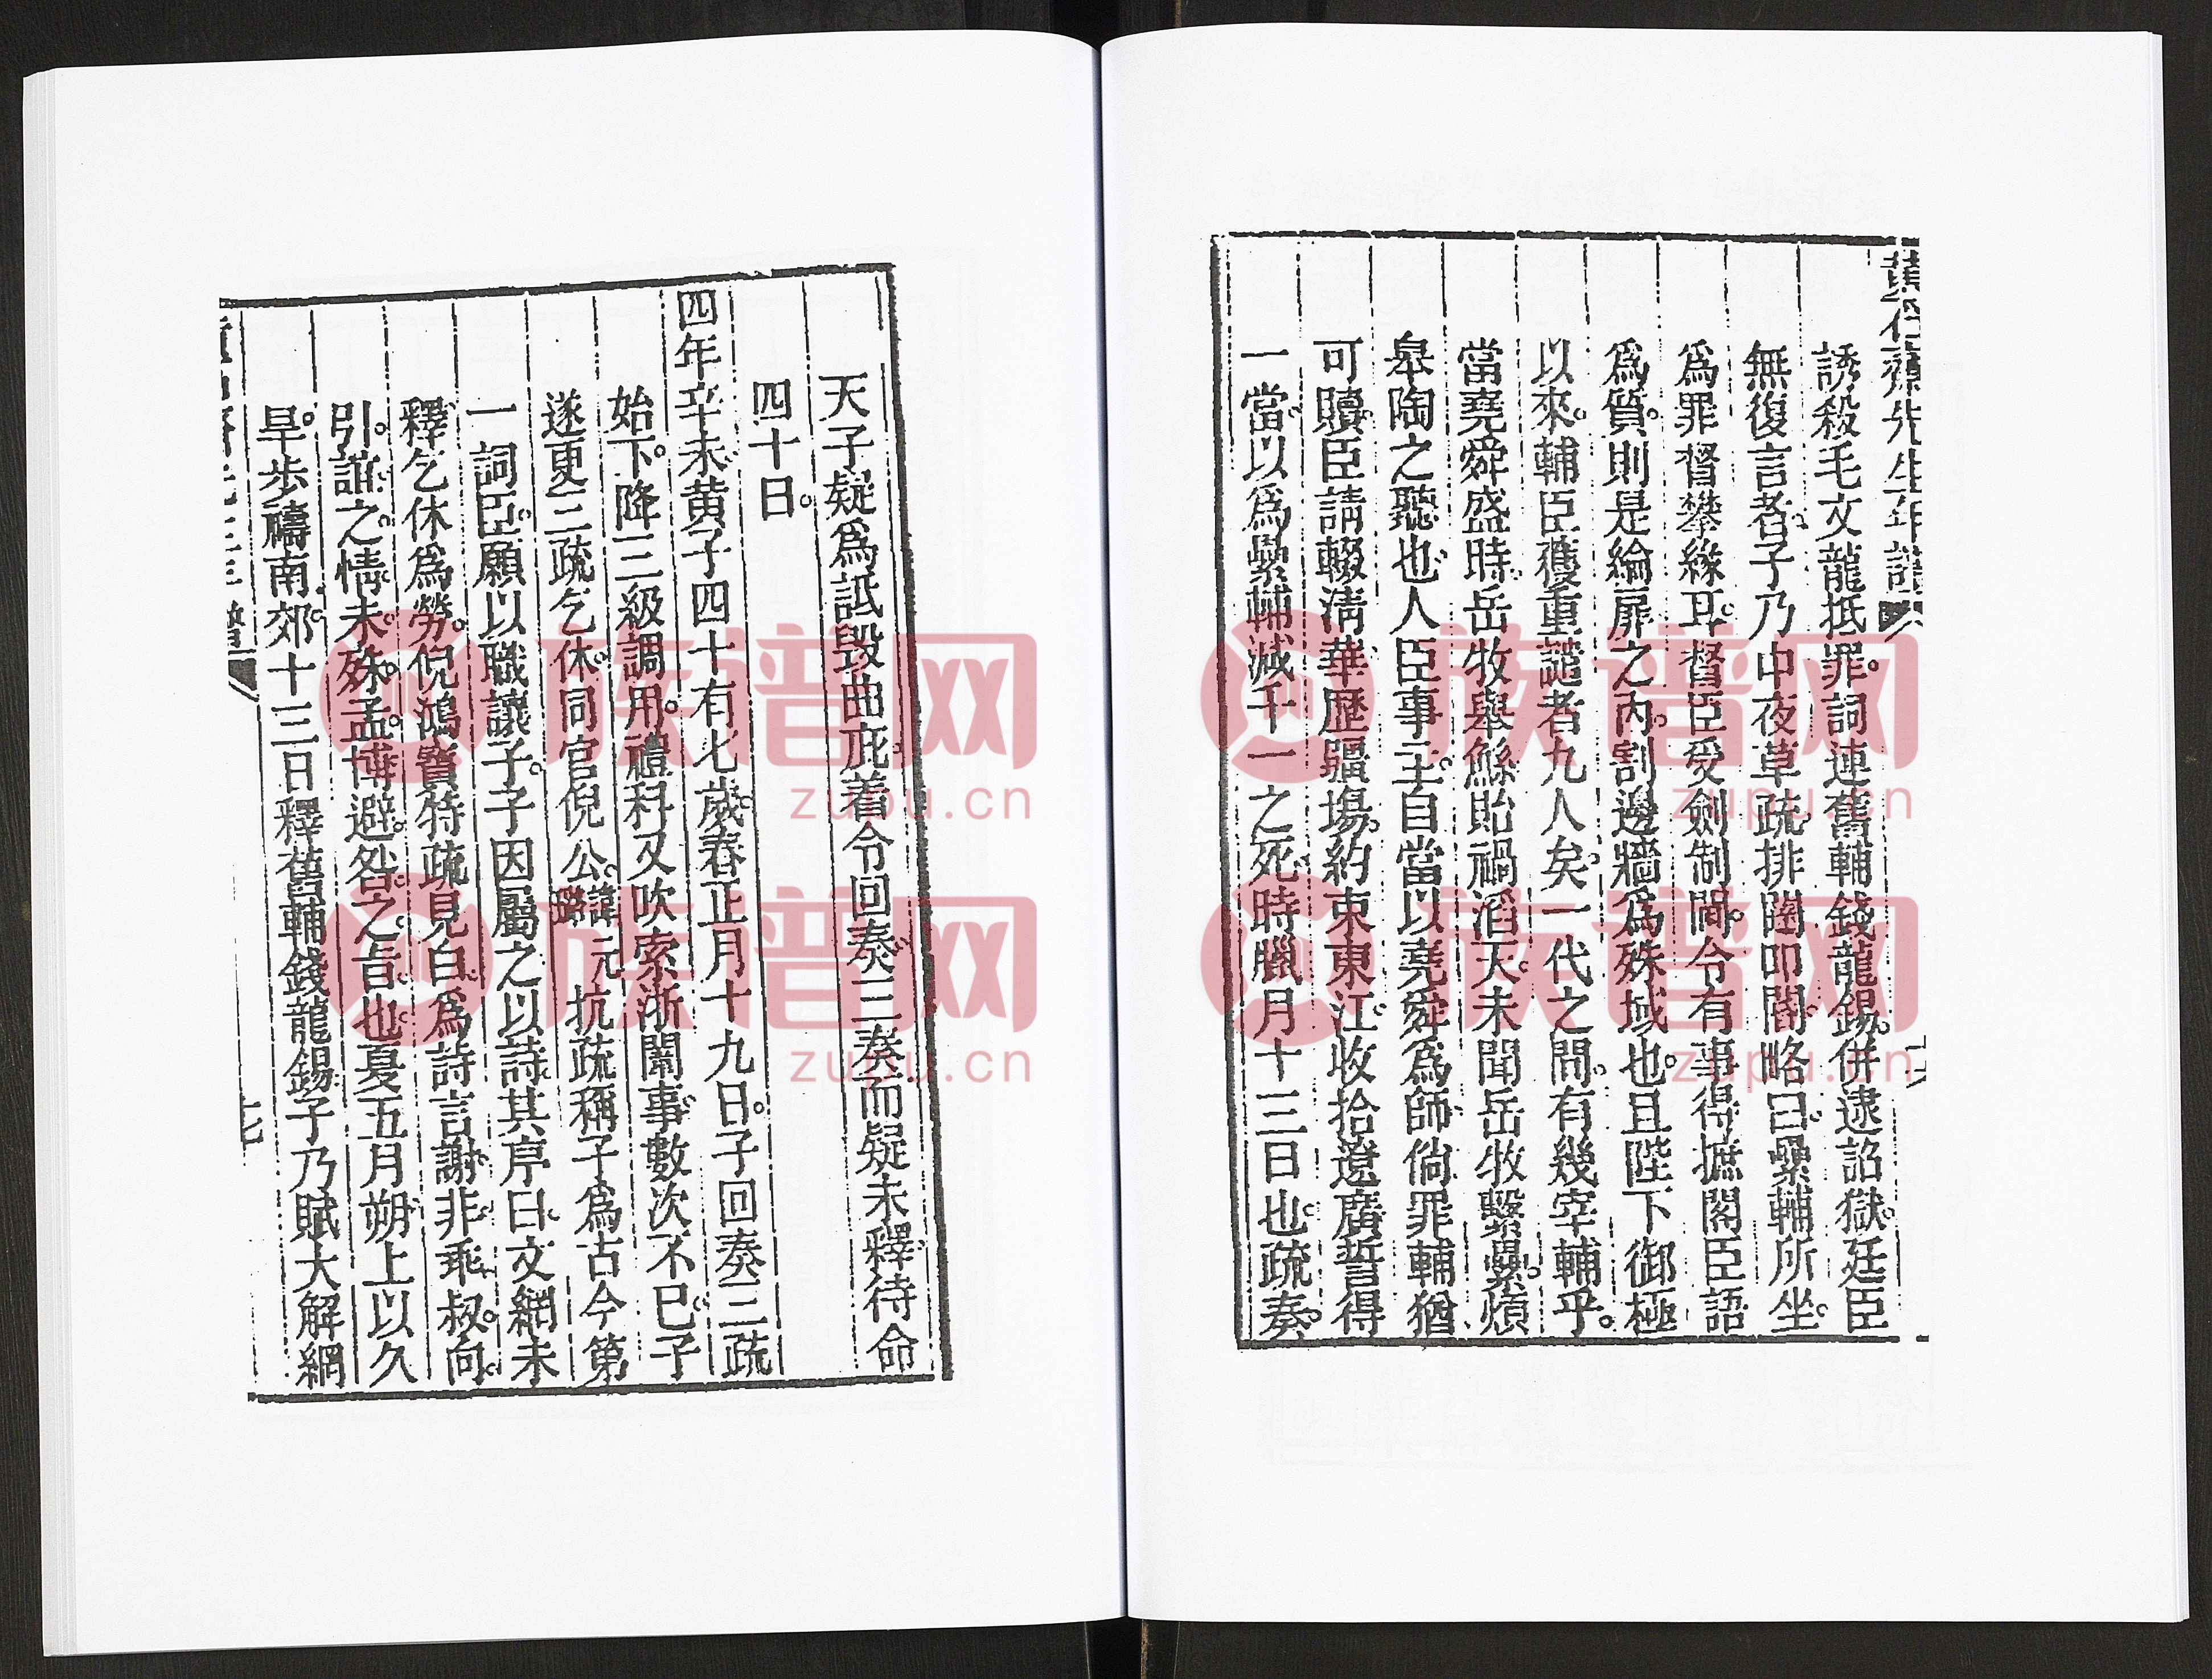 誘殺毛文龍抵罪。詞連舊輔錢龍錫。併逮詔獄。廷臣
無復言者。子乃中夜草疏。排闥叩閽。略曰。纍輔所坐。
爲罪督攀緣耳。督臣受劍制閫。令有事得摭閣臣語
爲質。則是綸扉之内。割邊牆爲殊域也。且陛下御極
以來。輔臣獲重譴者九人矣。一代之間。有幾宰輔乎。
當堯舜盛時。岳牧舉鯀貽禍滔天。未聞岳牧繫纍。煩
皋陶之聽也。人臣事主。自當以堯舜爲師。倘罪輔猶
可贖。臣請輟淸華。歷疆場。約束東江。收拾遼廣。誓得
一當。以爲纍輔減千一之死。時臘月十三日也。疏奏。
天子疑爲詆毀曲庇。着令回奏。三奏而疑未釋。待命
四十日。
四年辛未黃子四十有七歲。春正月十九日。子回奏三疏
始下。降三級調用。禮科又吹索浙闈事。數次不已。子
遂更三疏乞休。同官倪公。諱元璐抗疏稱子爲古今第
一詞臣。願以職讓子。子因屬之以詩。其序曰。文網未
釋。乞休爲勞。倪鴻寶特疏見白。爲詩言謝。非乖叔。向。
引。誼。之。情。未。殊。孟。博。避。咎。之。旨。也。夏五月朔。上以久
旱。步禱南郊。十三日釋舊輔錢龍錫。子乃賦大解網
十七
族谱网
zupu.cn
族谱网
zupu.cn
族谱网
zupu.cn
族谱网
zupu.cn